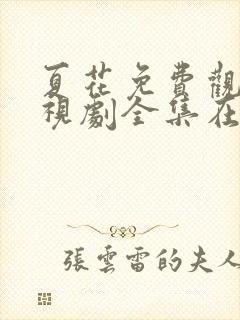 夏花免費觀
視劇全集在
張雲雷的夫人